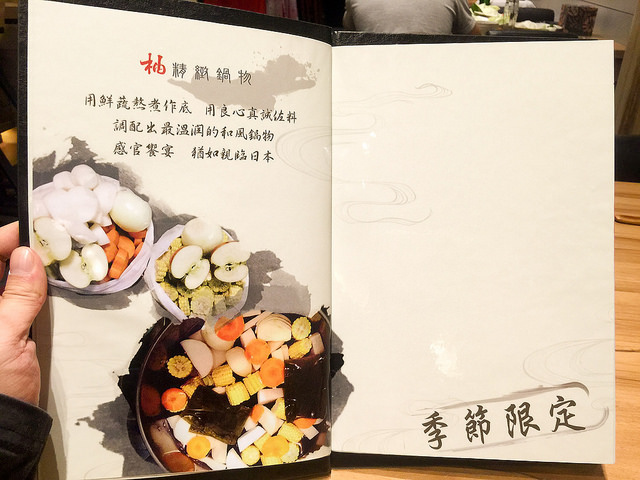 柚 精緻鍋物
用鮮蔬熬煮作底 用良心真誠佐料
調配出最溫潤的和風鍋物
感官饗宴 猶如親臨日本
季節限定